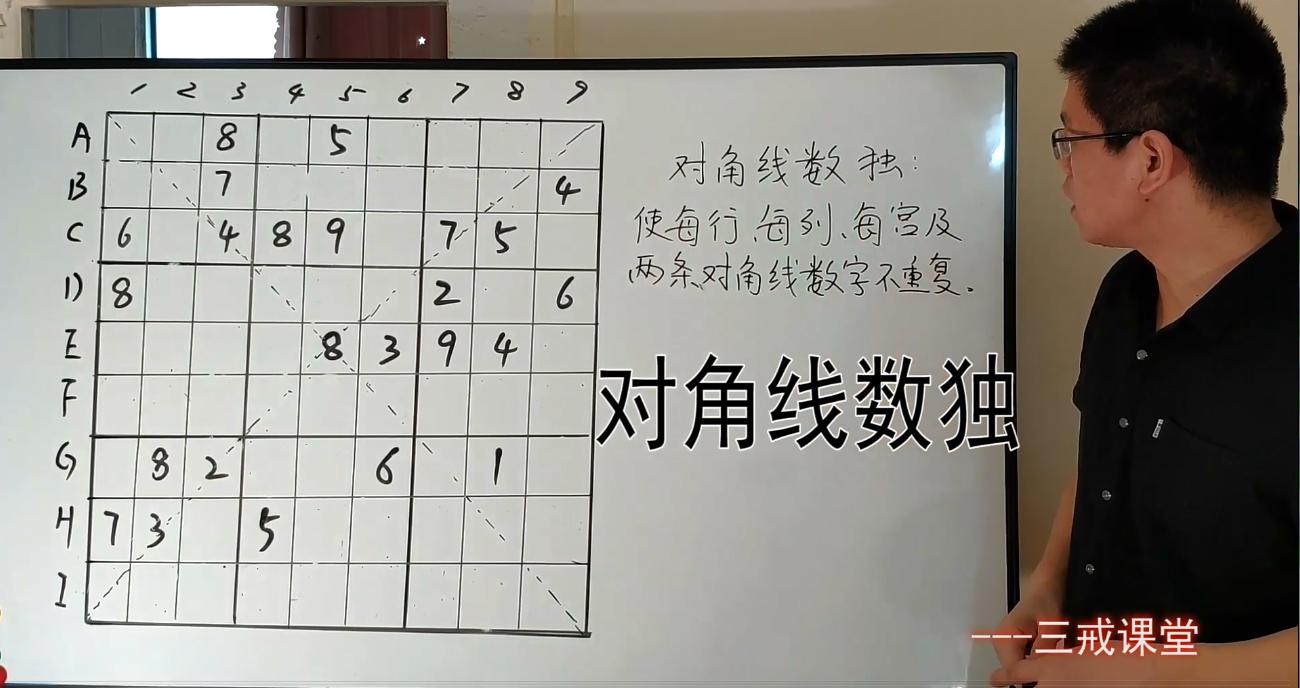 1 2 3 4 5 6 7 8 9
A 8 5
B 7 4
C 6 4 8 9 7 5
D 8 2 6
E 8 3 9 4
F
G 8 2 6 1
H 7 3 5
I
对角线数独:
使每行、每列、每宫及
两条对角线数字不重复.
对角线数独
---三戒课堂